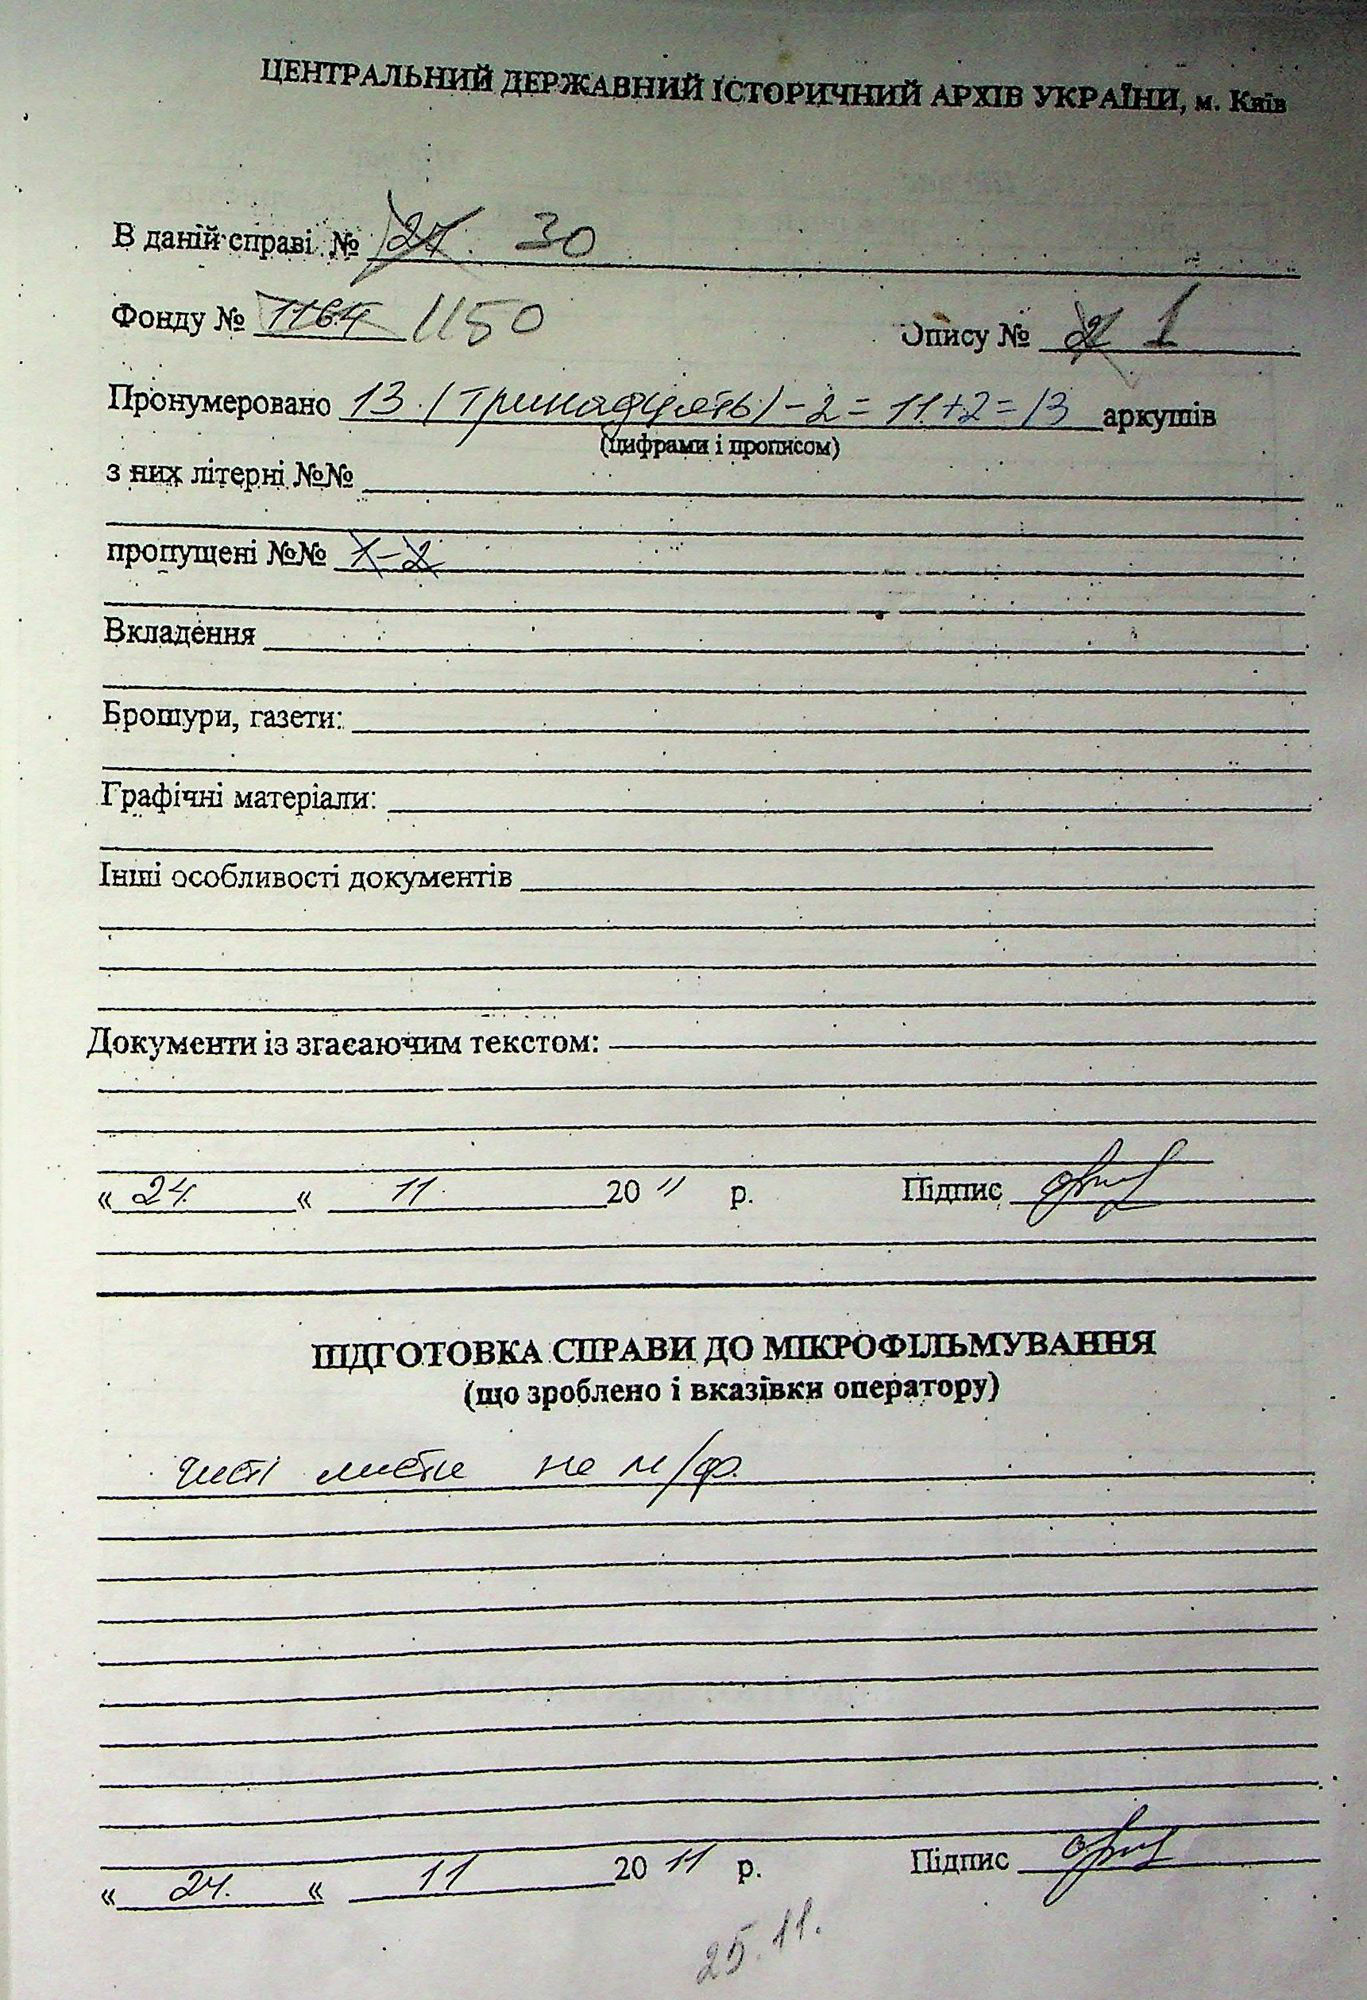 ЦЕНТРАЛЬНИЙ ДЕРЖАВНИЙ ІСТОРИЧНИЙ АРХІВ УКРАЇНИ, м. Київ
В даній справі № 27. 30
Фонду № 1164 1150 Опису № 2 1
Пронумеровано 13 (тринадцять) - 2 = 11 + 2 = 13 аркушів
(цифрами і прописом)
з них літерні №№
пропущені №№ 1-2
Вкладення
Брошури, газети:
Графічні матеріали:
Інші особливості документів
Документи із згасаючим текстом:
« 24. « 11. 20 11 р. Підпис
ПІДГОТОВКА СПРАВИ ДО МІКРОФІЛЬМУВАННЯ
(що зроблено і вказівки оператору)
чисті листи не м/ф.
« 24. « 11 20 11 р. Підпис
25.11.